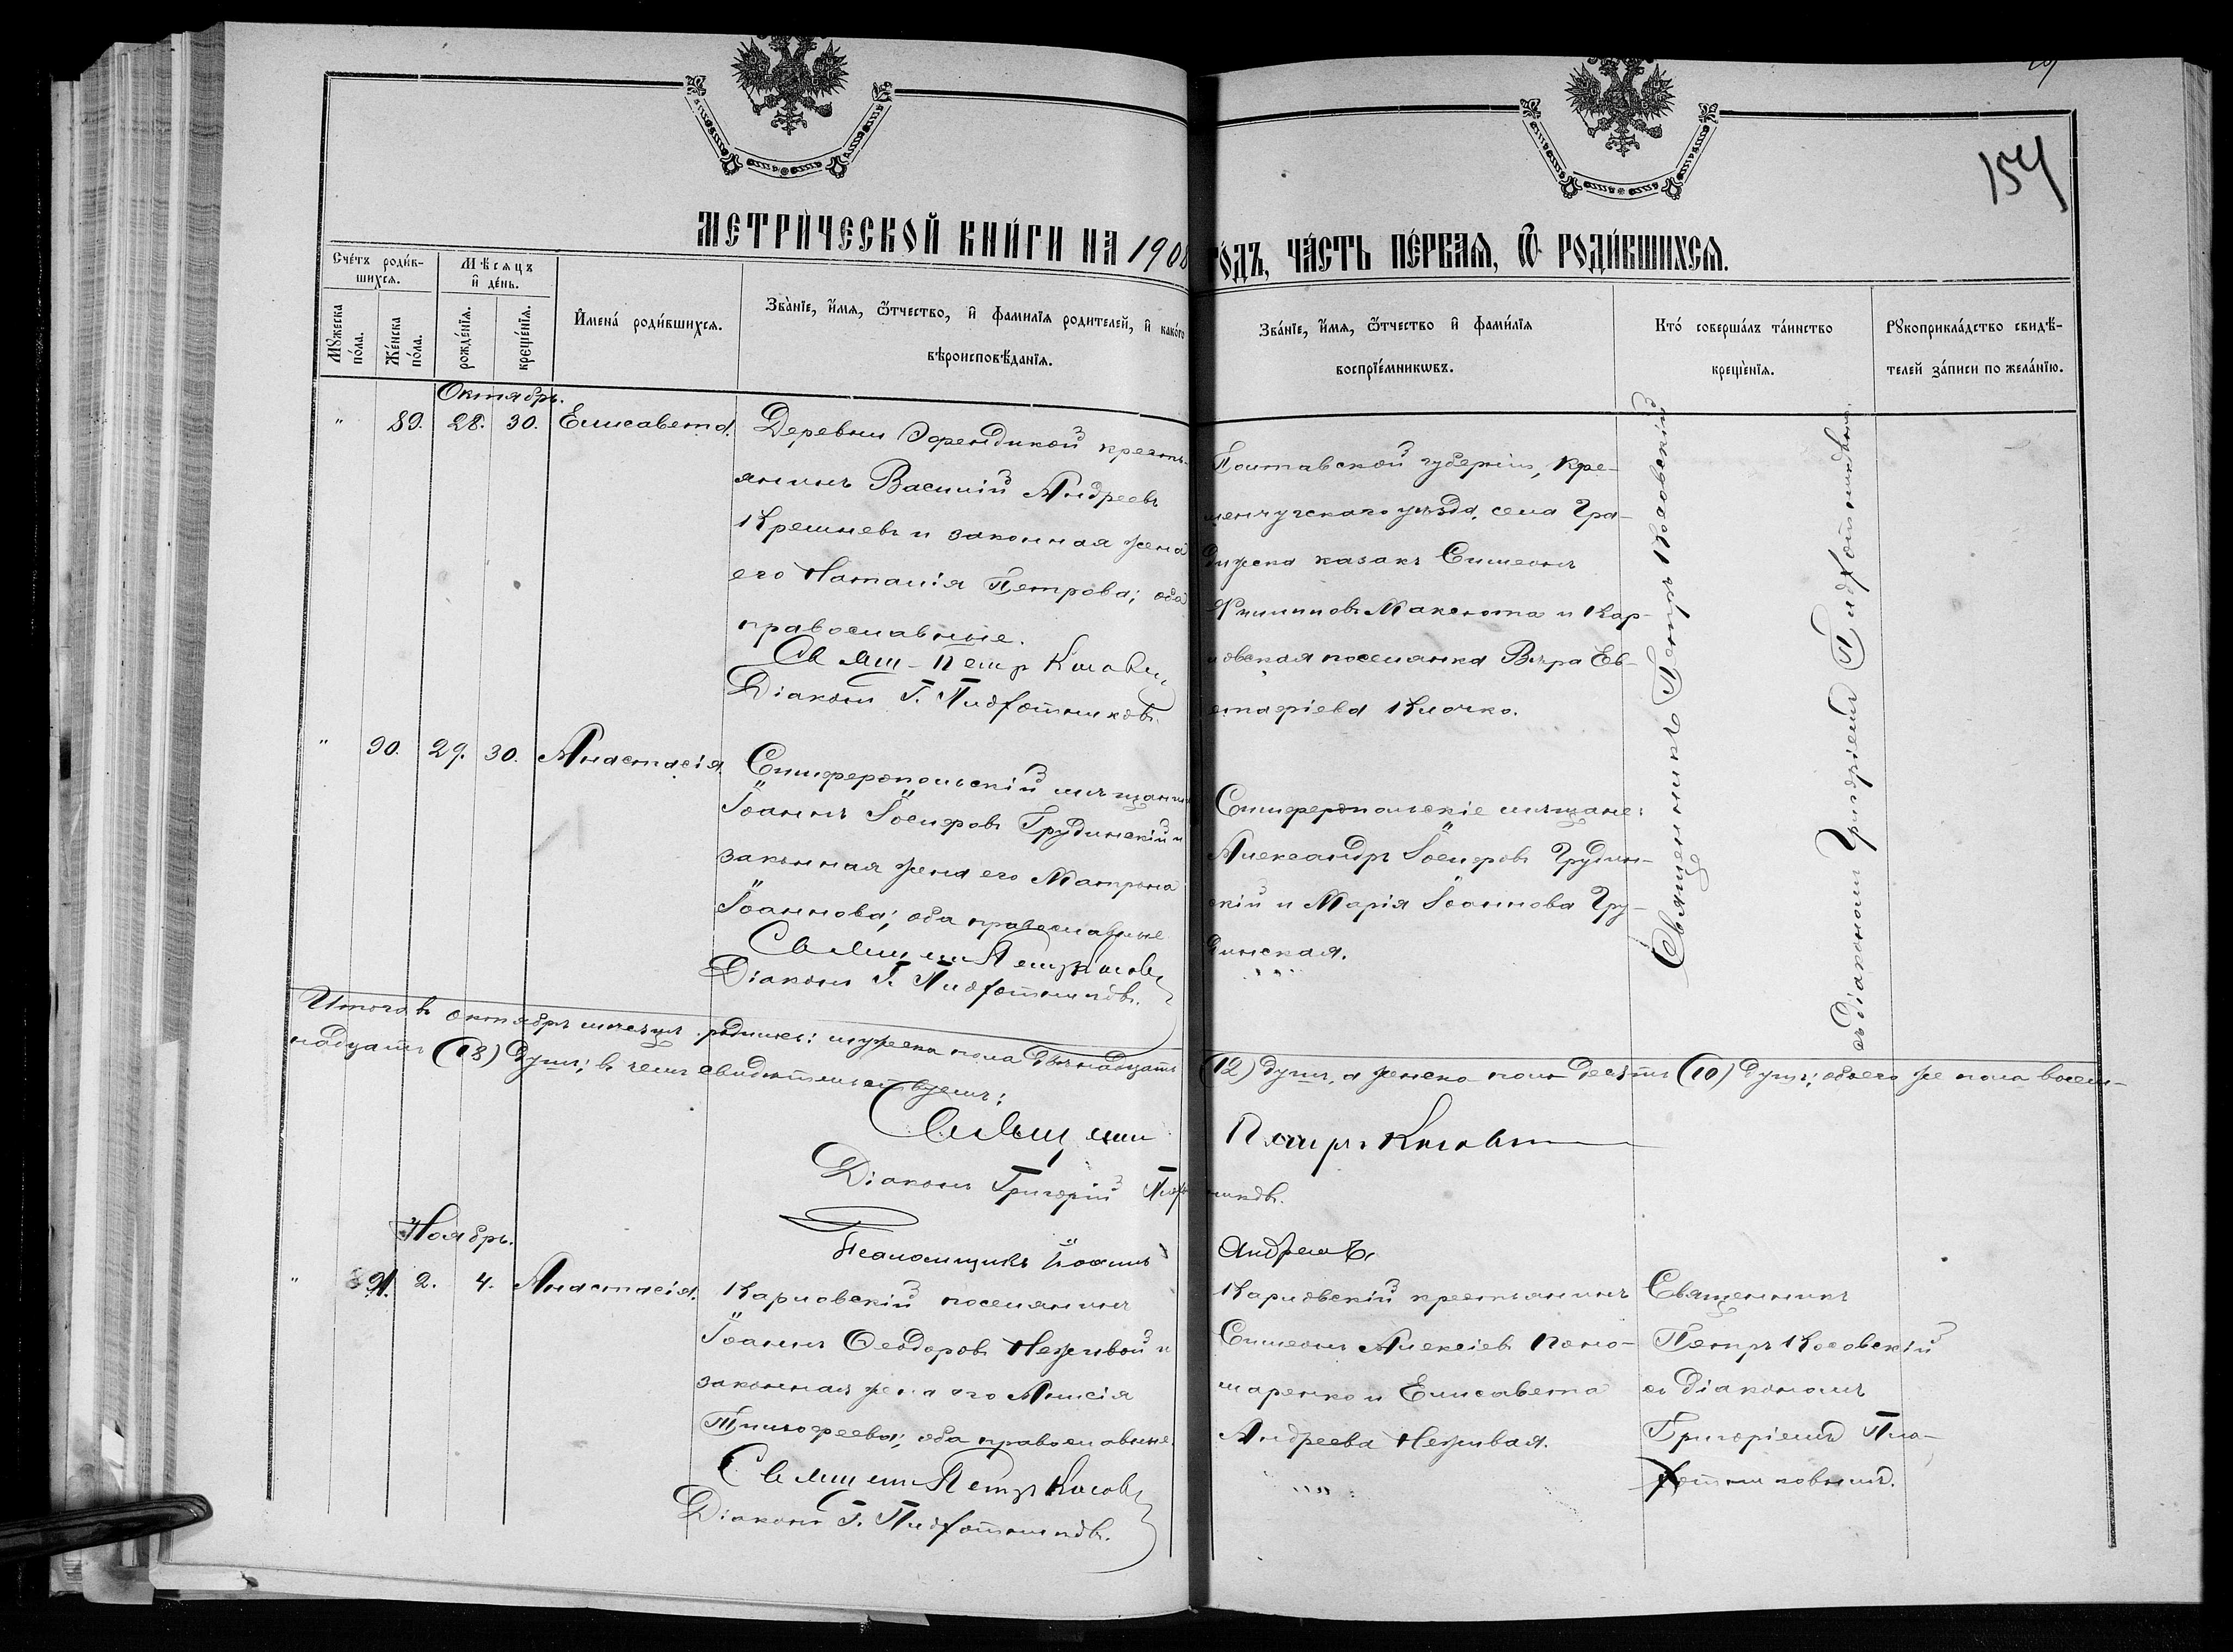 154
МЕТРИ́ЧЕСКОЙ КНИ́ГИ НА 1908 ГОДЪ, ЧА́СТЬ ПЕ́РВАѦ, Ѿ РОДИ́ВШИХСѦ.
Счётъ роди́в-
шихсѧ.
Мꙋжеска по́ла.
Же́нска по́ла.
Мѣ́сѧцъ и҆ де́нь.
рожде́нїѧ.
креще́нїѧ.
И҆мена́ роди́вшихсѧ.
Зва́нїе, и҆́мѧ, ѻ҆́тчество, и҆ фами́лїѧ роди́телей, и҆ како́гѡ
вѣроисповѣ́данїѧ.
Зва́нїе, и҆́мѧ, ѻ҆́тчество и҆ фами́лїѧ
воспрїе́мникѡвъ.
Кто́ соверша́лъ та́инство
креще́нїѧ.
Рꙋкоприкла́дство свидѣ́-
телей за́писи по жела́нїю.
Октябрь.
" 89. 28. 30. Елисавета.
Деревни Эфендикой кресть-
янинъ Василій Андреевъ
Крешневъ и законная жена
его Наталія Петрова; оба
православные.
Священ. Петръ Косов.
Діаконъ Г. Плохотниковъ.
Полтавской губерніи, Кре-
менчугскаго уѣзда, села Гра-
дижска казакъ Симеонъ
Филипповъ Максюта и Кар-
ловская поселянка Вѣра Ев-
стафіева Клочко.
Священникъ Петръ Косовскій
съ діакономъ Григоріемъ Плохотниковымъ.
" 90. 29. 30. Анастасія.
Симферопольскій мѣщанинъ
Іоаннъ Іосифовъ Грудинскій и
законная жена его Матрона
Іоаннова; оба православные
Священ. Петръ Косов.
Діаконъ Г. Плохотниковъ.
Симферопольскіе мѣщане:
Александръ Іосифовъ Грудин-
скій и Марія Іоаннова Гру-
динская.
Итого въ октябрѣ мѣсяцѣ родилось: мужеска пола двѣнадцать (12) душъ, а женска пола десять (10) душъ; обоего же пола восем-
надцать (18) душъ; въ чемъ свидѣтельствуемъ:
Священ. Петръ Косов
Діаконъ Григорій Плохотниковъ.
Псаломщикъ Іоаннъ Андреевъ
Ноябрь.
" 91. 2. 4. Анастасія.
Карловскій поселянинъ
Іоаннъ Ѳеодоровъ Неживой и
законная жена его Анисія
Тимофеева; оба православные.
Священ. Петръ Косов.
Діаконъ Г. Плохотниковъ.
Карловскій крестьянинъ
Симеонъ Алексіевъ Поно-
маренко и Елисавета
Андреева Неживая.
Священникъ
Петръ Косовскій
съ діакономъ
Григоріемъ Пло-
хотниковымъ.